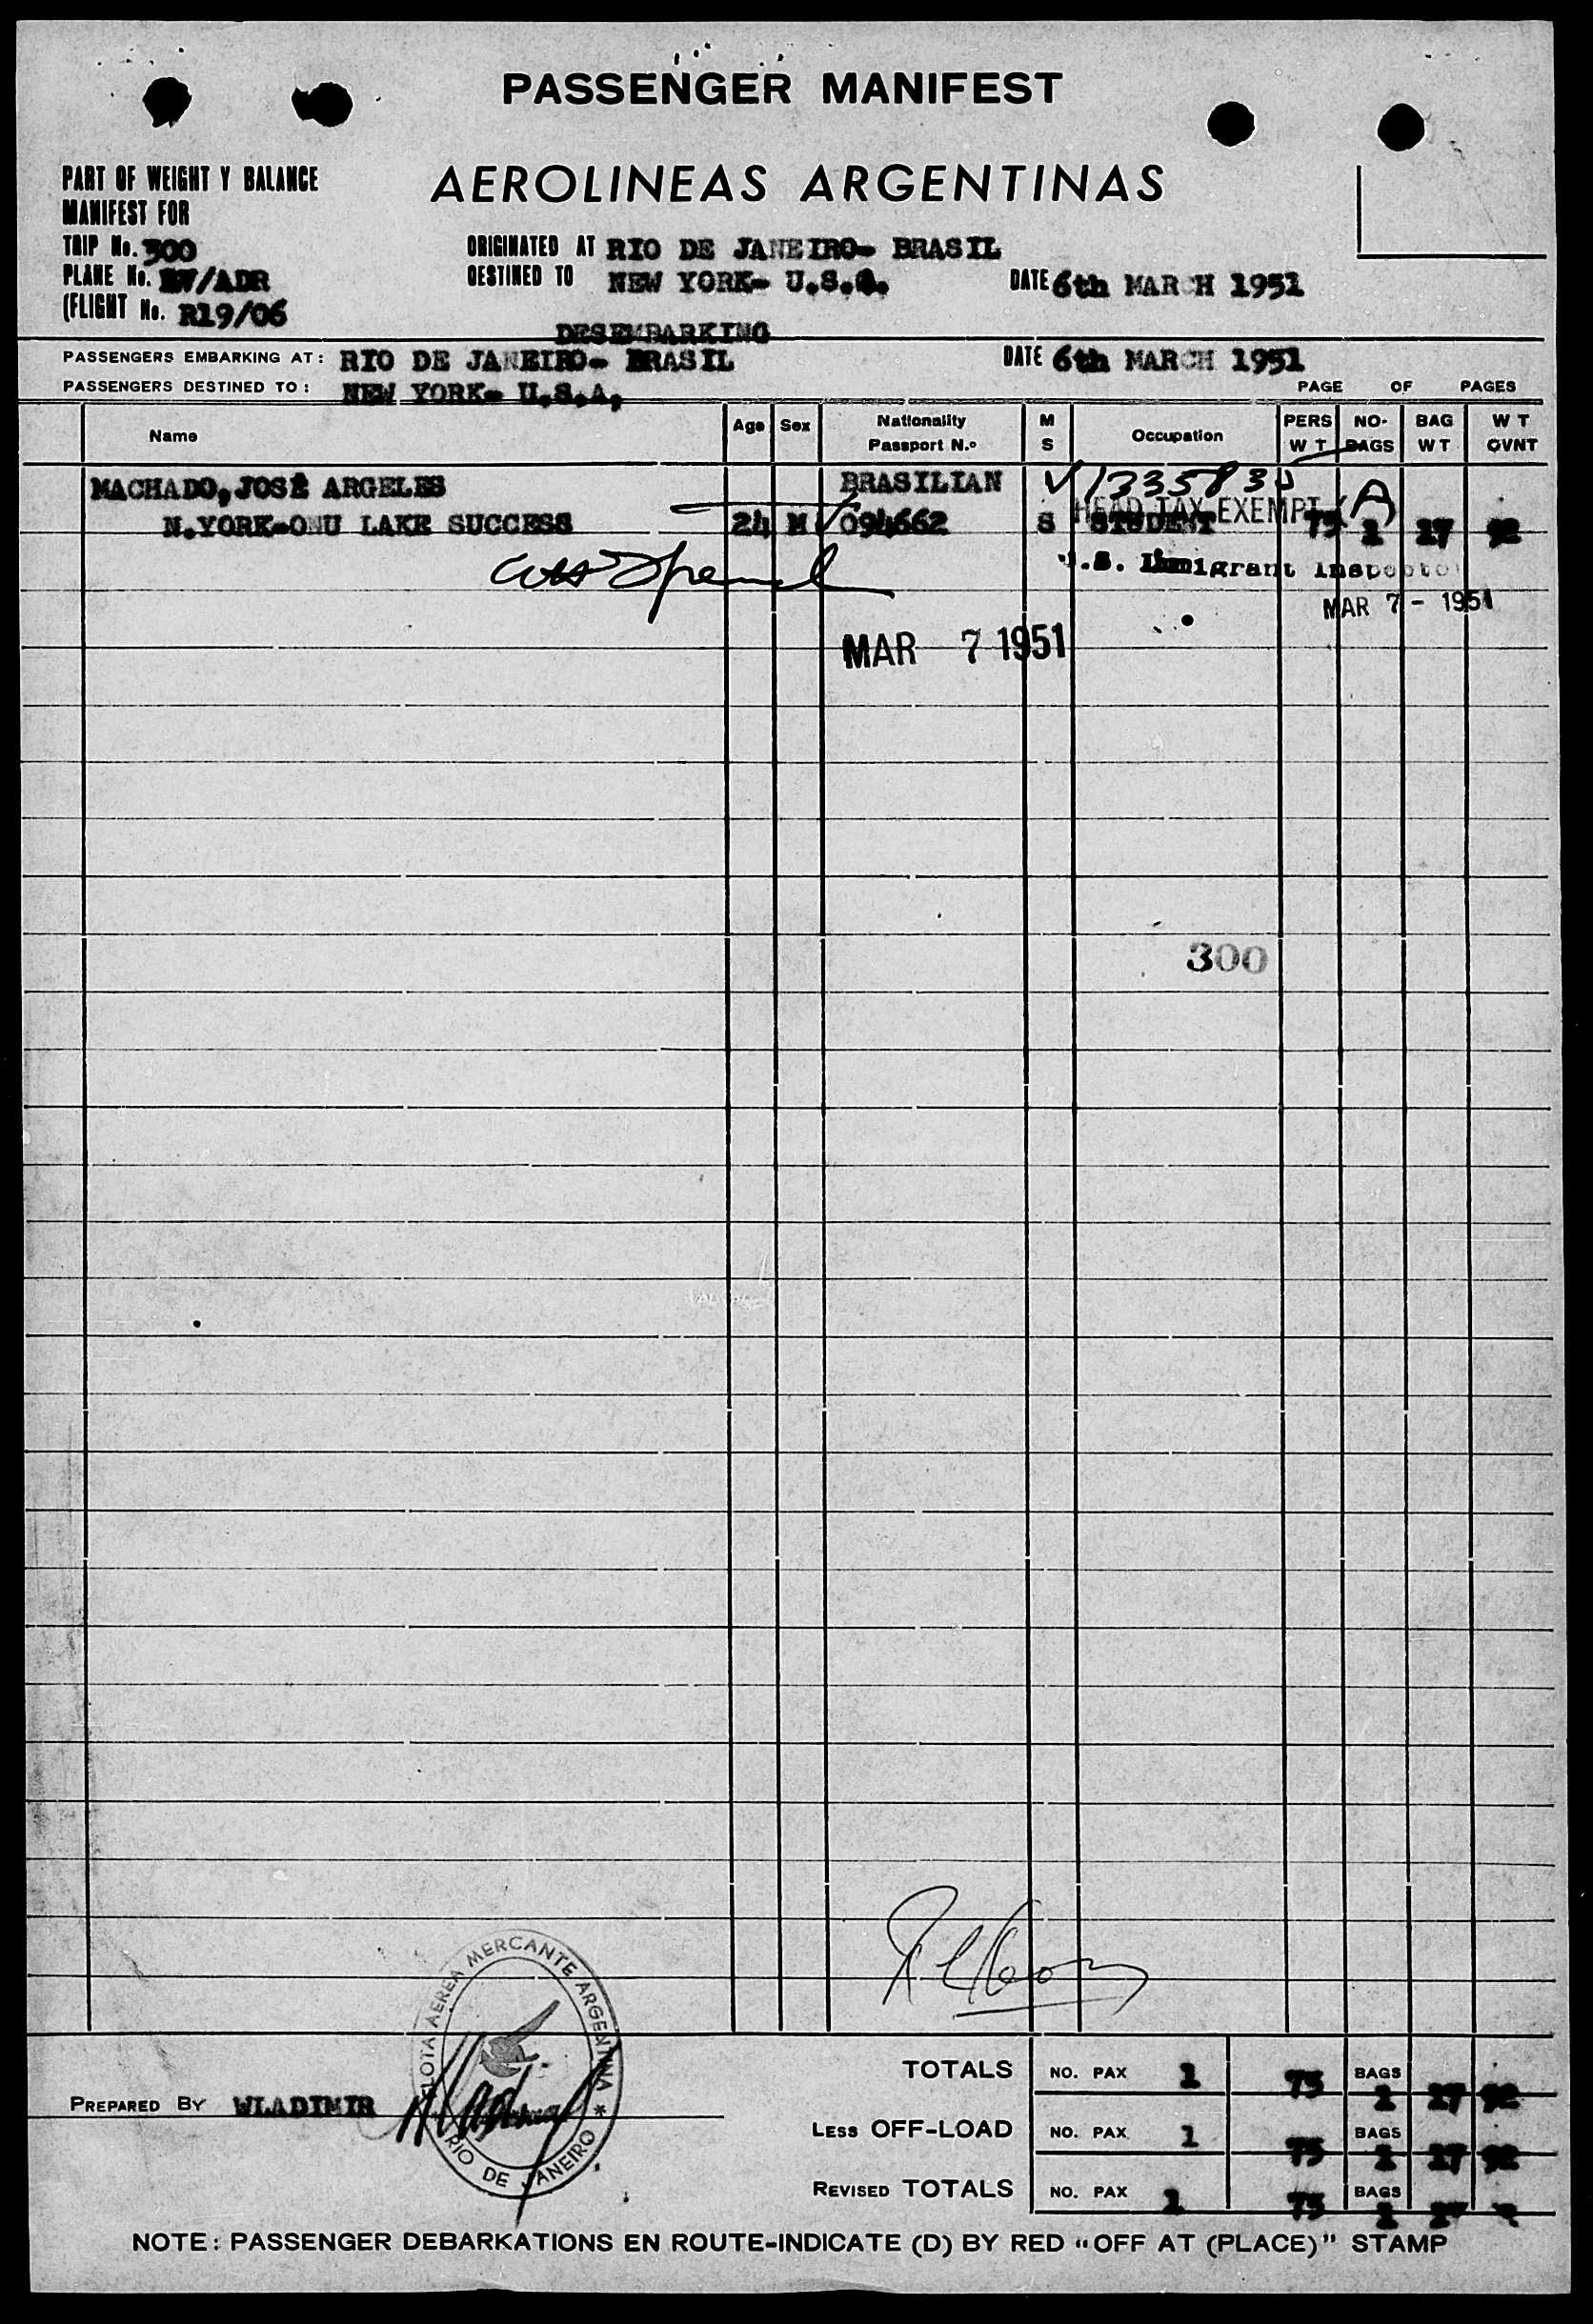 PASSENGER MANIFEST
AEROLINEAS ARGENTINAS
PART OF WEIGHT Y BALANCE
MANIFEST FOR
TRIP No. 300
PLANE No. LV/ADR
(FLIGHT No. R19/06
ORIGINATED AT RIO DE JANEIRO- BRASIL
DESTINED TO NEW YORK- U.S.A. DATE 6th MARCH 1951
DESEMBARKING
PASSENGERS EMBARKING AT: RIO DE JANEIRO- BRASIL DATE 6th MARCH 1951
PASSENGERS DESTINED TO: NEW YORK- U.S.A. PAGE OF PAGES
Name Age Sex Nationality Passport N.º M S Occupation PERS WT NO- BAGS BAG WT WT GVNT
MACHADO, JOSÉ ARGELES BRASILIAN
HEAD TAX EXEMPT (A)
N.YORK-ONU LAKE SUCCESS 24 M 094662 S STUDENT 75 1 17 92
U.S. Immigrant Inspector
MAR 7 - 1951
MAR 7 1951
300
FLOTA AEREA MERCANTE ARGENTINA * RIO DE JANEIRO
PREPARED BY WLADIMIR
TOTALS NO. PAX 1 75 BAGS 1 17 92
LESS OFF-LOAD NO. PAX 1 75 BAGS 1 17 92
REVISED TOTALS NO. PAX 1 75 BAGS 1 17
NOTE: PASSENGER DEBARKATIONS EN ROUTE-INDICATE (D) BY RED "OFF AT (PLACE)" STAMP